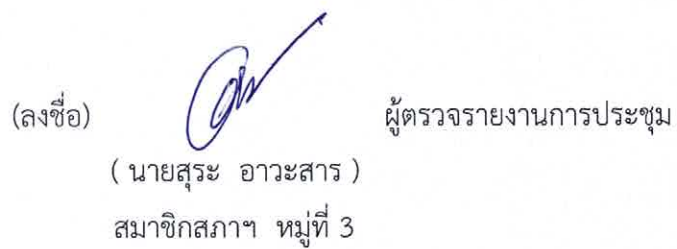 (ลงชื่อ) ผู้ตรวจรายงานการประชุม
( นายสุระ อาวะสาร )
สมาชิกสภาฯ หมู่ที่ 3